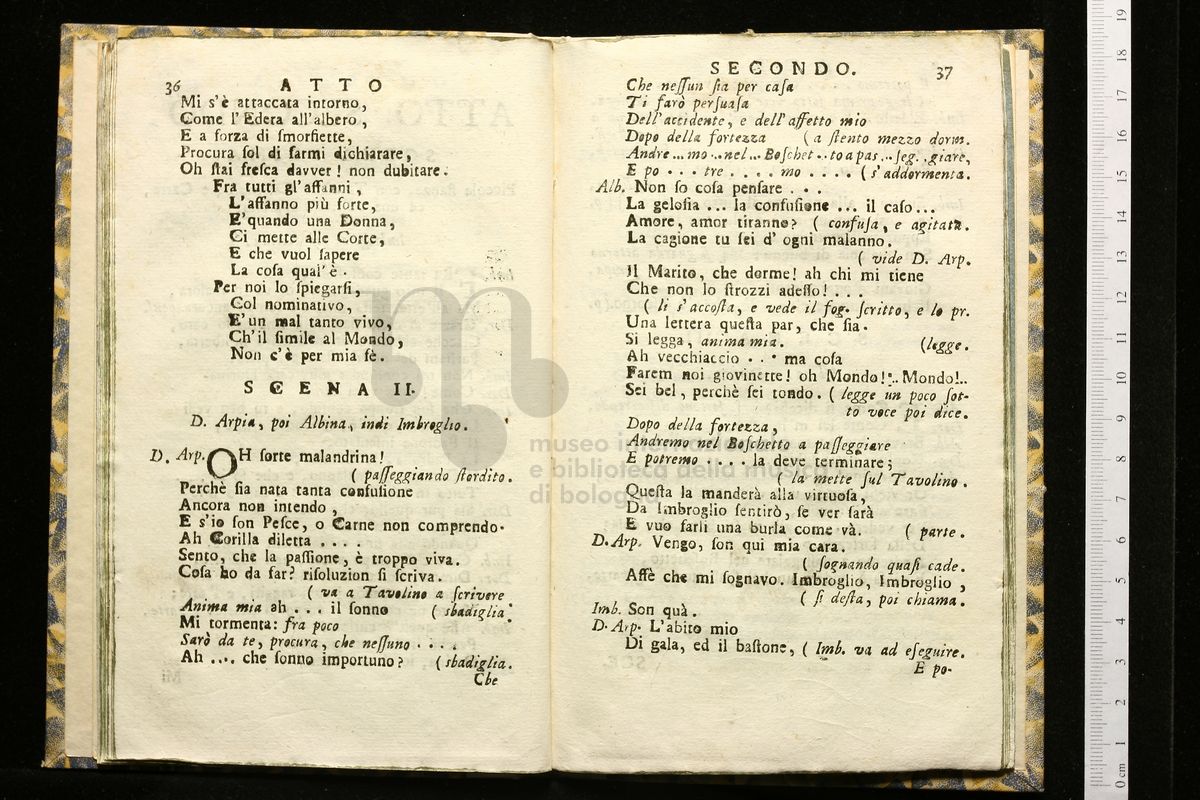 36 ATTO
Mi s'è attaccata intorno,
Come l'Edera all'albero,
E a forza di ſmorfiette,
Procura ſol di farmi dichiarare,
Oh ſtai freſca davver! non dubitare.
Fra tutti gl'affanni,
L'affanno più forte,
E'quando una Donna,
Ci mette alle Corte,
E che vuol ſapere
La coſa qual'è.
Per noi lo ſpiegarſi,
Col nominativo,
E'un mal tanto vivo,
Ch'il ſimile al Mondo,
Non c'è per mia fè.
SCENA II.
D. Arpia, poi Albina, indi Imbroglio.
D. Arp. OH ſorte malandrina!
( paſſeggiando ſtordito.
Perchè ſia nata tanta confuſione
Ancora non intendo,
E s'io ſon Peſce, o Carne non comprendo.
Ah Corilla diletta ....
Sento, che la paſſione, è troppo viva.
Coſa ho da far? riſoluzion ſi ſcriva.
( va a Tavolino a ſcrivere
Anima mia ah ... il ſonno ( sbadiglia.
Mi tormenta: fra poco
Sarò da te, procura, che neſſuno ....
Ah .... che ſonno importuno? (sbadiglia.
Che
SECONDO. 37
Che neſſun ſia per caſa
Ti farò perſuaſa
Dell'accidente, e dell'affetto mio
Dopo della fortezza (a ſtento mezzo dorm.
Andre ... mo ... nel ... Boſchet .. to a pas .. ſeg .. giare,
E po ... tre .... mo .... (s'addormenta.
Alb. Non ſo coſa penſare ...
La geloſia ... la confuſione ... il caſo ...
Amore, amor tiranno? ( confuſa, e agitata.
La cagione tu ſei d'ogni malanno.
( vide D. Arp.
Il Marito, che dorme! ah chi mi tiene
Che non lo ſtrozzi adeſſo! ...
( li s'accoſta, e vede il fog. ſcritto, e lo pr.
Una lettera queſta par, che ſia.
Si legga, anima mia. (legge.
Ah vecchiaccio ... ma coſa
Farem noi giovinette! oh Mondo!... Mondo!..
Sei bel, perchè ſei tondo. ( legge un poco ſot-
to voce poi dice.
Dopo della fortezza,
Andremo nel Boſchetto a paſſeggiare
E potremo .... la deve terminare;
( la mette ſul Tavolino.
Queſta la manderà alla virtuoſa,
Da Imbroglio ſentirò, ſe ver ſarà
E vuo farli una burla come và. ( parte.
D. Arp. Vengo, ſon qui mia cara.
( ſognando quaſi cade.
Affè che mi ſognavo. Imbroglio, Imbroglio,
( ſi deſta, poi chiama.
Imb. Son quà.
D. Arp. L'abito mio
Di gala, ed il baſtone, ( Imb. va ad eſeguire.
E po-